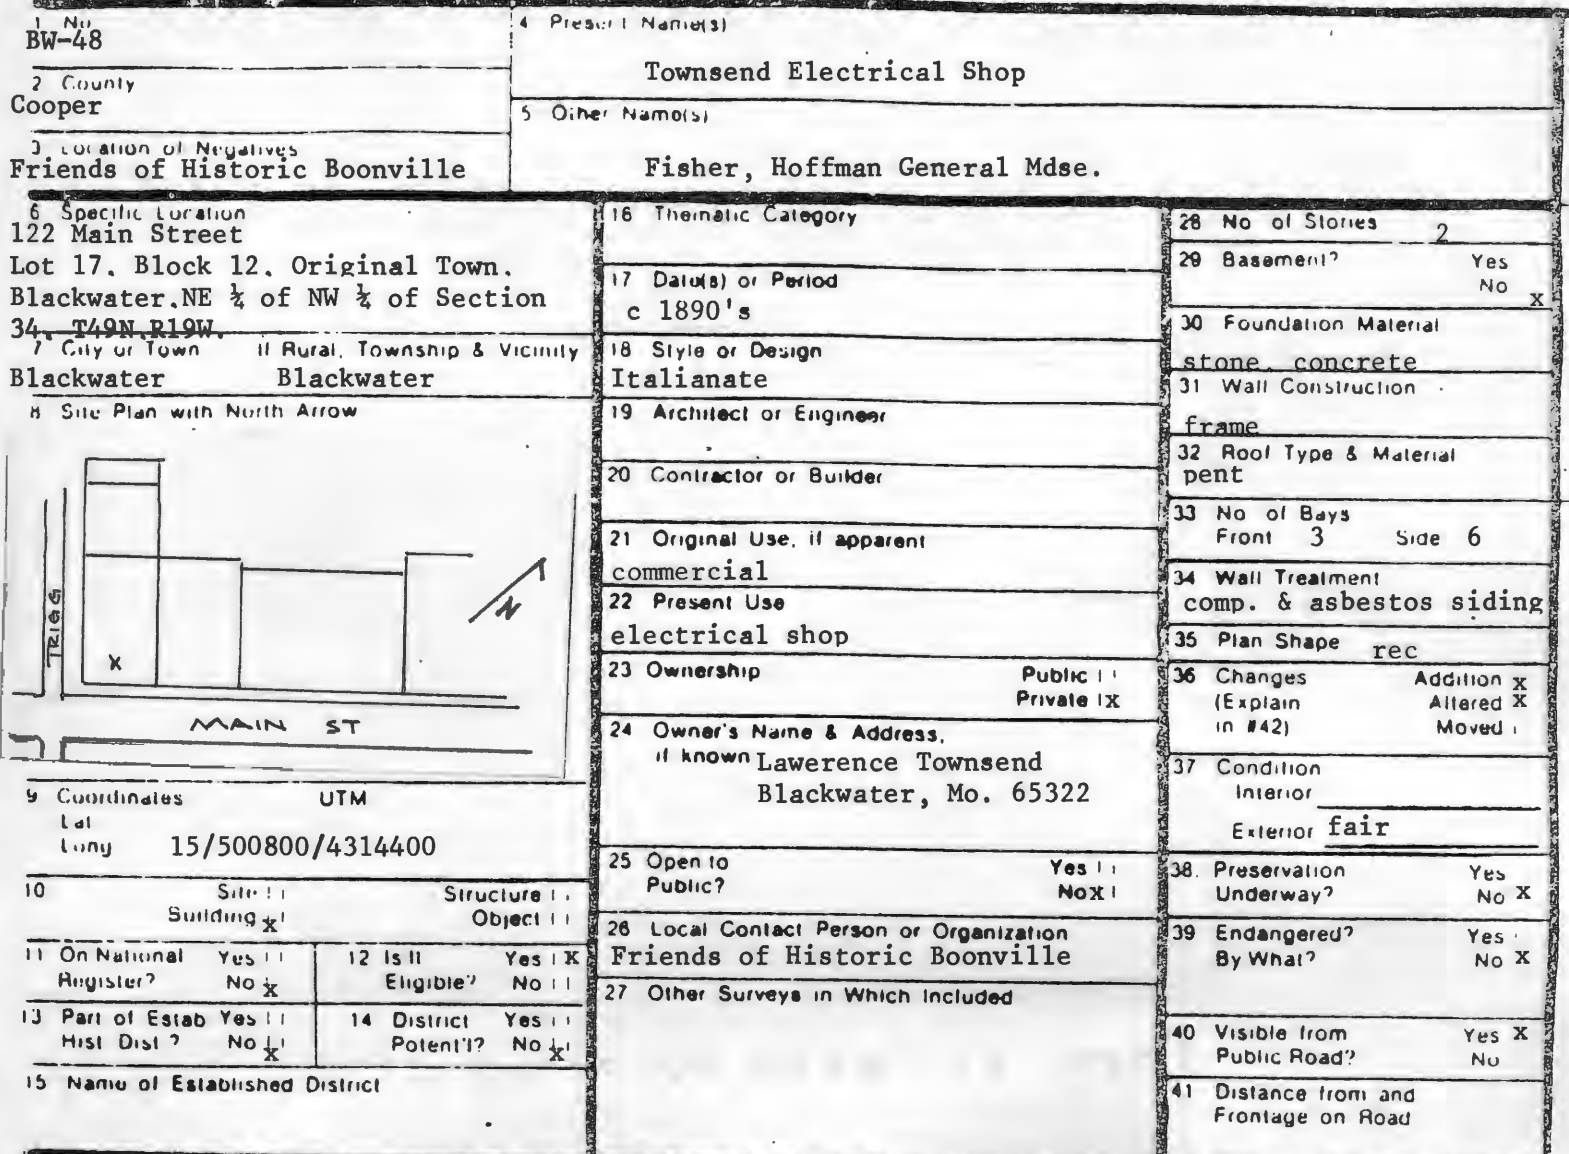 1 No.
BW-48
2 County
Cooper
3 Location of Negatives
Friends of Historic Boonville
4 Present Name(s)
Townsend Electrical Shop
5 Other Name(s)
Fisher, Hoffman General Mdse.
6 Specific Location
122 Main Street
Lot 17, Block 12, Original Town.
Blackwater.NE ¼ of NW ¼ of Section
34, T49N.R19W.
7 City or Town If Rural, Township & Vicinity
Blackwater Blackwater
8 Site Plan with North Arrow
TRIGG
X
N
MAIN ST
9 Coordinates UTM
Lat
Long 15/500800/4314400
10 Site Structure
Building x Object
11 On National Yes
Register? No x
12 Is It Yes X
Eligible? No
13 Part of Estab Yes
Hist Dist ? No x
14 District Yes
Potent'l? No x
15 Name of Established District
16 Thematic Category
17 Date(s) or Period
c 1890's
18 Style or Design
Italianate
19 Architect or Engineer
20 Contractor or Builder
21 Original Use, if apparent
commercial
22 Present Use
electrical shop
23 Ownership Public
Private X
24 Owner's Name & Address,
if known Lawerence Townsend
Blackwater, Mo. 65322
25 Open to Yes
Public? No X
26 Local Contact Person or Organization
Friends of Historic Boonville
27 Other Surveys in Which Included
28 No of Stories 2
29 Basement? Yes
No X
30 Foundation Material
stone, concrete
31 Wall Construction
frame
32 Roof Type & Material
pent
33 No of Bays
Front 3 Side 6
34 Wall Treatment
comp. & asbestos siding
35 Plan Shape rec
36 Changes Addition X
(Explain Altered X
in #42) Moved
37 Condition
Interior
Exterior fair
38. Preservation Yes
Underway? No X
39 Endangered? Yes
By What? No X
40 Visible from Yes X
Public Road? No
41 Distance from and
Frontage on Road